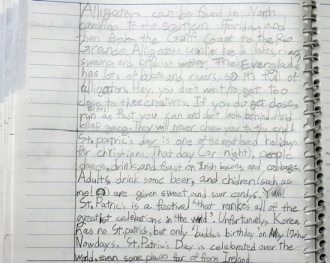 Alligators can be found in North
Carolina to the southern Florida, and
then from the Gulf Coast to the Rio
Grande. Alligators usually live in lakes, rivers,
swamps and brakish water. The Everglades
has lots of lakes and rivers, so it's full of
alligators. Hey, you don't want to get too
close to those creatures. If you do get close,
run as fast your can and don't look behind. And
keep going. They will never chase you to the end!
St. patric's day is one of the most loved holidays
for christians. That day (or night), people
dance, drink, and feast on Irish bacons and cabbage.
Adults drink some beer, and children (such as
me!) are given sweet and sour candy.
St. Patric's is a festival that rankes all of the
greatest celebrations in the world. Unfortunely, Korea
has no St. patric's, but only "budda's birthday" on May 17th.
Nowdays, St. Patric's Day is celebrated over the
world, even some places far of from Ireland.